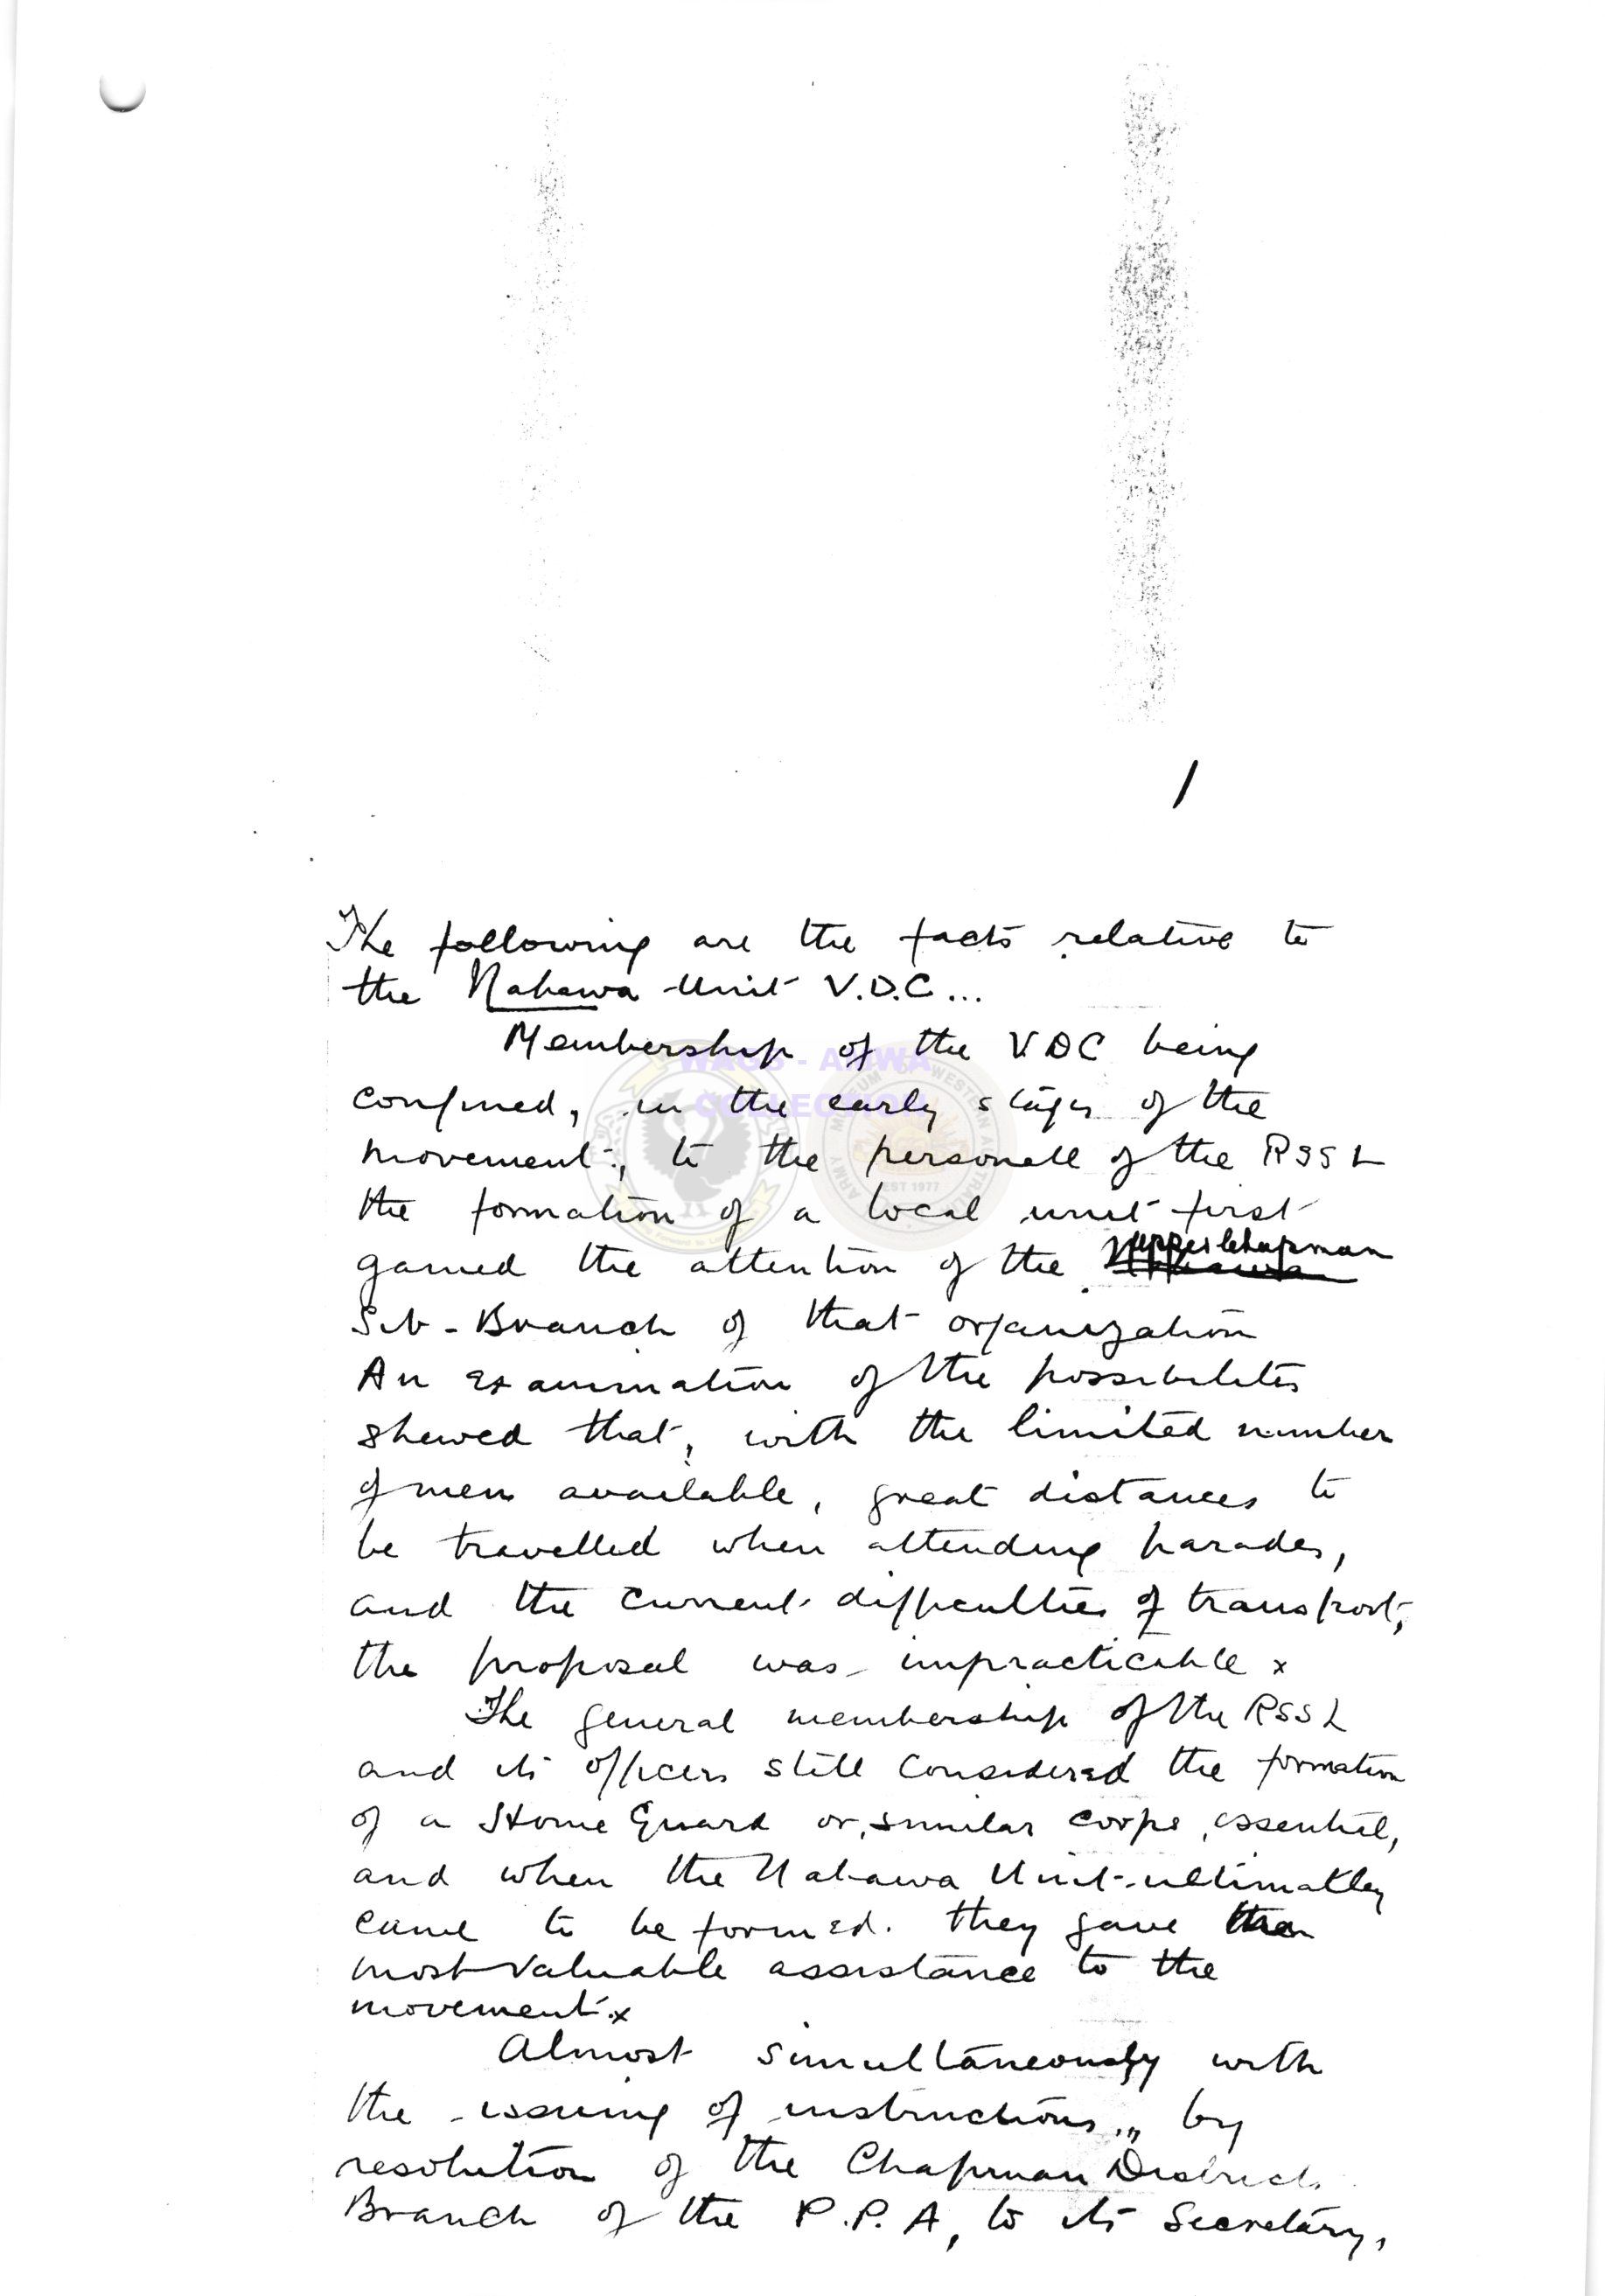 1
The following are the facts relative to
the Nabawa Unit V.D.C...
Membership of the VDC being
confined, in the early stages of the
movement, to the personell of the RSSL
the formation of a local unit first
gained the attention of the Upper Chapman
Sub-Branch of that organization
An examination of the possibilities
shewed that, with the limited number
of men available, great distances to
be travelled when attending parades,
and the current difficulties of transport,
the proposal was impracticable x
The general membership of the RSSL
and its officers still considered the formation
of a Home Guard or similar corps, essential,
and when the Nabawa Unit ultimatley
came to be formed. they gave
most valuable assistance to the
movement x
Almost simultaneously with
the issuing of instructions,, by
resolution of the Chapman District
Branch of the P.P.A, to its Secretary,
WAGS - AMWA
COLLECTION
ARMY MUSEUM OF WESTERN AUSTRALIA
EST 1977